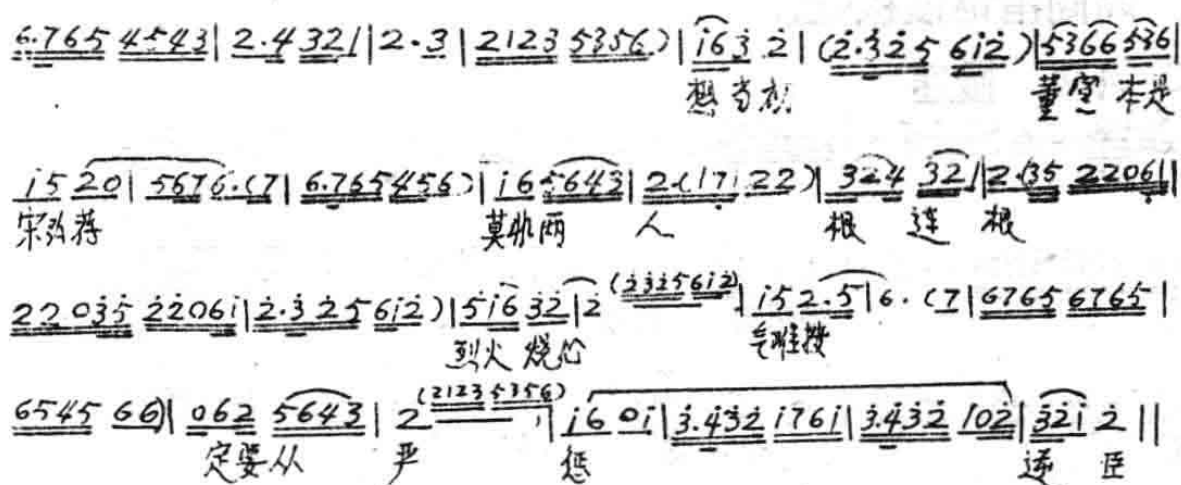 6·765 4543 | 2·4 321 | 2·3 | 2123 5356) | i6 3 2 | (2·325 6i2) | 5366 536 |
想当初 董宣 本是
i5 20 | 5676·(7 | 6·765456) | i6 5643 | 2·(171 22) | 324 321 | 2·(35 22061 |
宋弘荐 莫非两 人 根 连 根
22035 2206i | 2·325 6i2) | 5i6 32 | 2 (2325 6i2) | i5 2·5 | 6·(7 | 6765 6765 |
烈火 烧心 气难按
6545 66) | 062 5643 | 2 (2123 5356) | i6 0i | 3·432 i76i | 3·432 102 | 32i 2 ||
定要从 严 惩 逆 臣